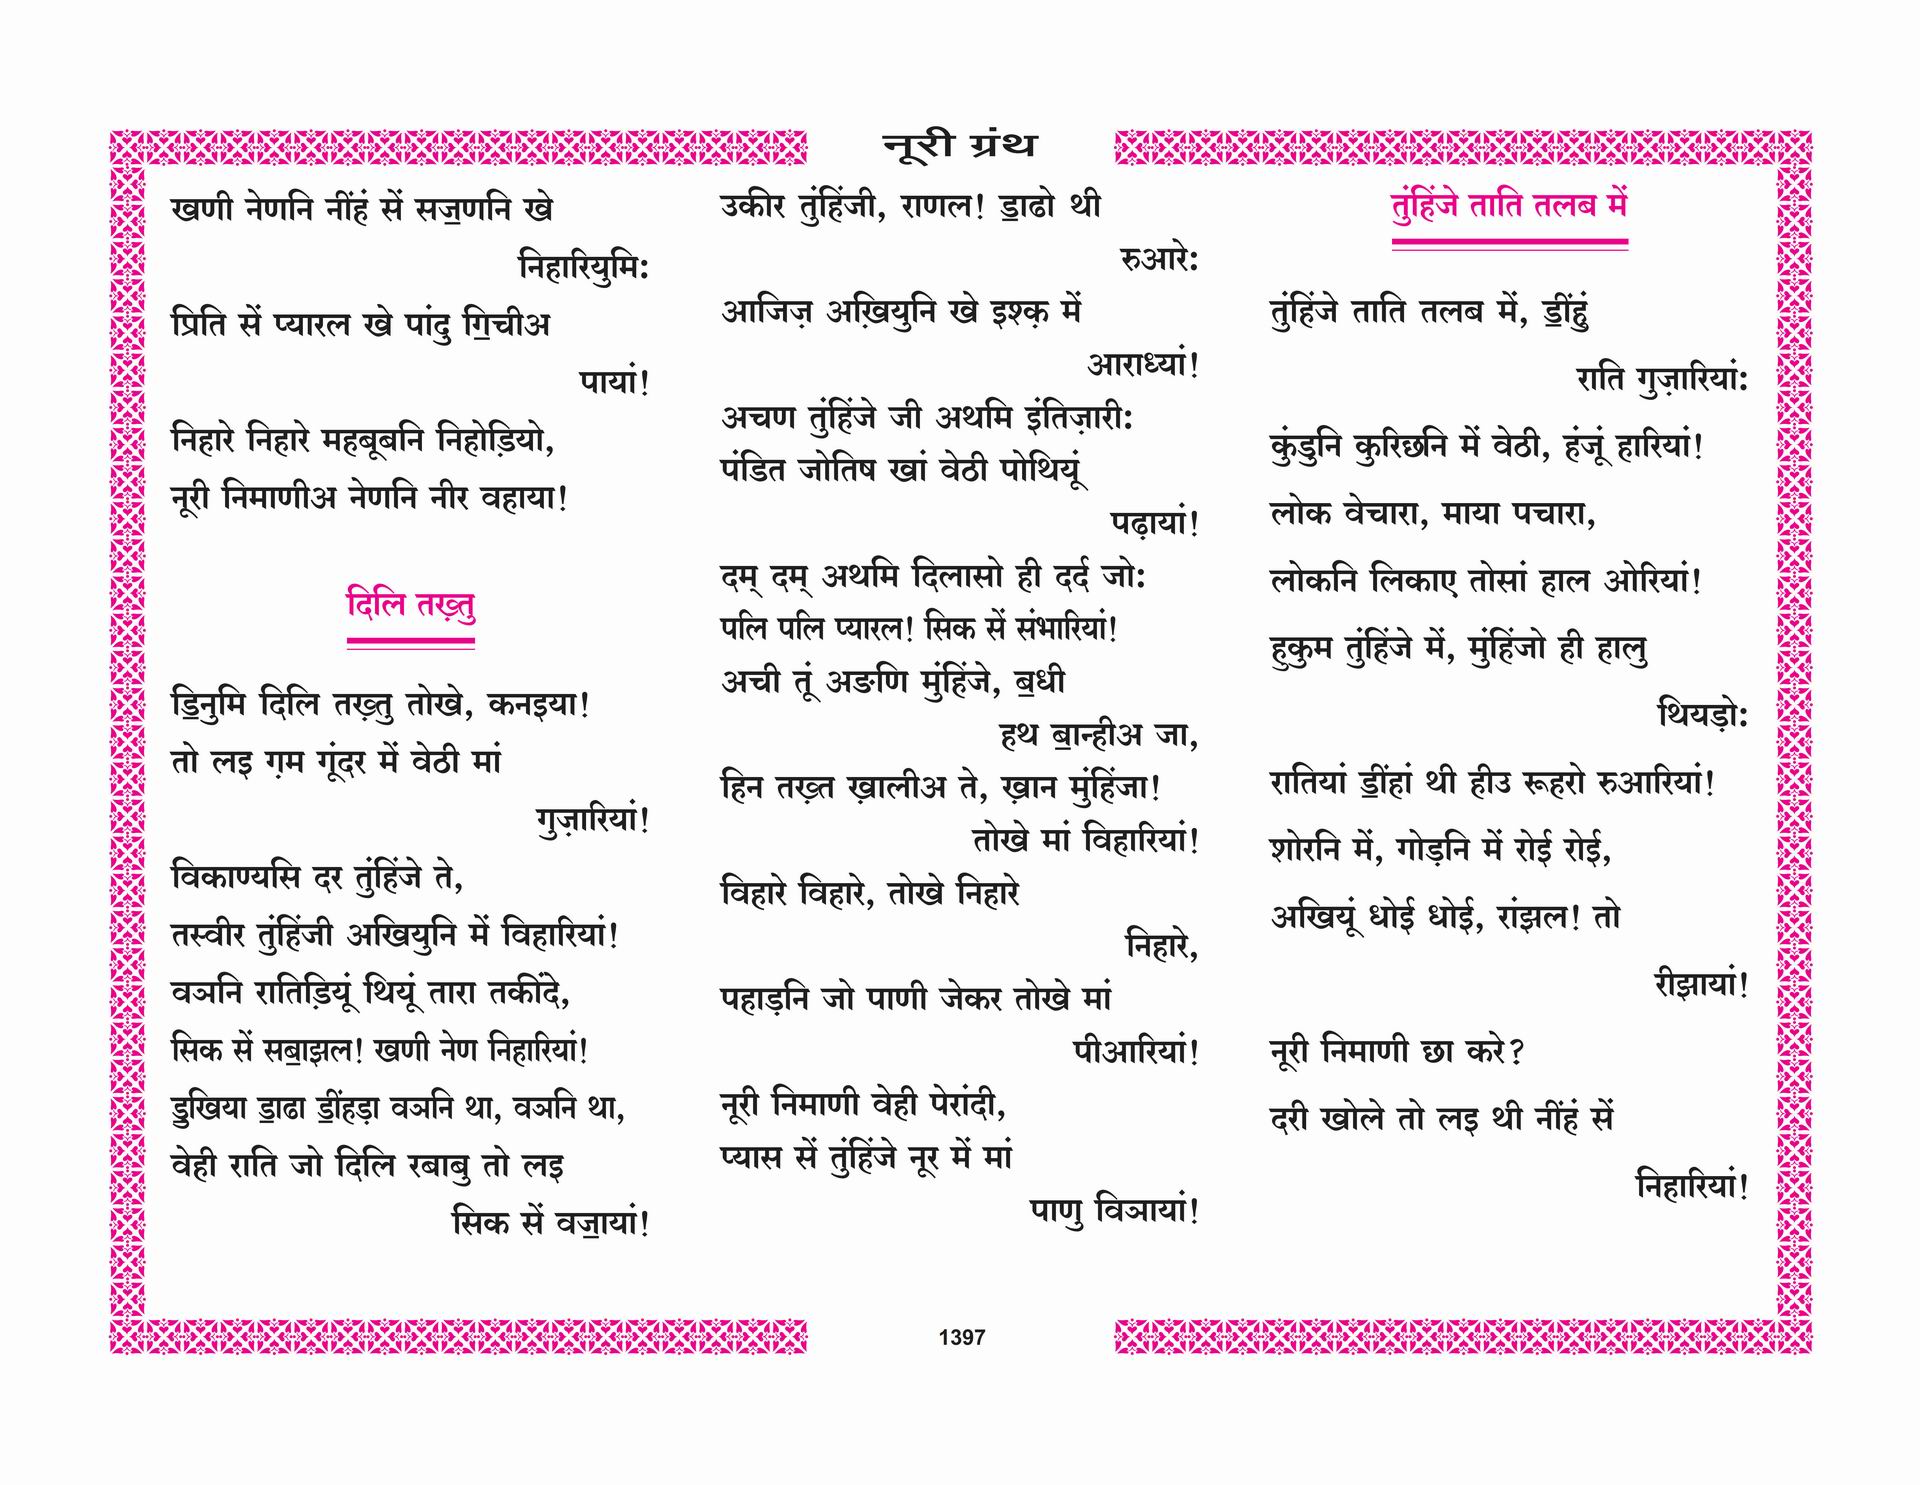 नूरी ग्रंथ
खणी नेणनि नींहं सें सज॒णनि खे
निहारियुमि:
प्रिति सें प्यारल खे पांदु गि॒चीअ
पायां!
निहारे निहारे महबूबनि निहोड़ियो,
नूरी निमाणीअ नेणनि नीर वहाया!
दिलि तख़्तु
डि॒नुमि दिलि तख़्तु तोखे, कनइया!
तो लइ ग़म गूंदर में वेठी मां
गुज़ारियां!
विकाण्यसि दर तुंहिंजे ते,
तस्वीर तुंहिंजी अखियुनि में विहारियां!
वञनि रातिड़ियूं थियूं तारा तकींदे,
सिक सें सबा॒झल! खणी नेण निहारियां!
डु॒खिया डा॒ढा डीं॒हड़ा वञनि था, वञनि था,
वेही राति जो दिलि रबाबु तो लइ
सिक सें वजा॒यां!
उकीर तुंहिंजी, राणल! डा॒ढो थी
रुआरे:
आजिज़ अखि़युनि खे इश्क़ में
आराध्यां!
अचण तुंहिंजे जी अथमि इंतिज़ारी:
पंडित जोतिष खां वेठी पोथियूं
पढ़ायां!
दम् दम् अथमि दिलासो ही दर्द जो:
पलि पलि प्यारल! सिक सें संभारियां!
अची तूं अङणि मुंहिंजे, ब॒धी
हथ बा॒न्हीअ जा,
हिन तख़्त ख़ालीअ ते, ख़ान मुंहिंजा!
तोखे मां विहारियां!
विहारे विहारे, तोखे निहारे
निहारे,
पहाड़नि जो पाणी जेकर तोखे मां
पीआरियां!
नूरी निमाणी वेही पेरांदी,
प्यास सें तुंहिंजे नूर में मां
पाणु विञायां!
तुंहिंजे ताति तलब में
तुंहिंजे ताति तलब में, डीं॒हुं
राति गुज़ारियां:
कुंडुनि कुरिछनि में वेठी, हंजूं हारियां!
लोक वेचारा, माया पचारा,
लोकनि लिकाए तोसां हाल ओरियां!
हुकुम तुंहिंजे में, मुंहिंजो ही हालु
थियड़ो:
रातियां डीं॒हां थी हीउ रूहरो रुआरियां!
शोरनि में, गोड़नि में रोई रोई,
अखियूं धोई धोई, रांझल! तो
रीझायां!
नूरी निमाणी छा करे?
दरी खोले तो लइ थी नींहं सें
निहारियां!
1397